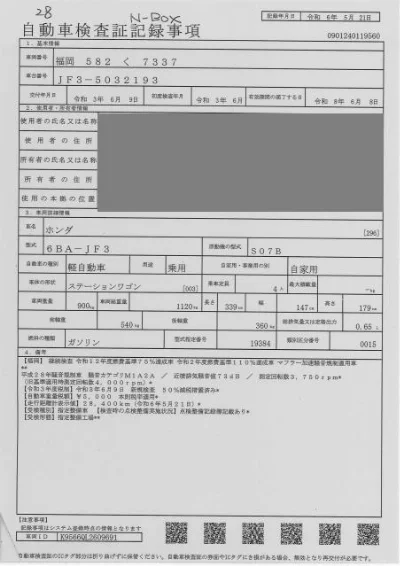 28 N-BOX
自動車検査証記録事項
記録年月日 令和 6年 5月 21日
0901240119560
1. 基本情報
車両番号 福岡 582 く 7337
車台番号 JF3-5032193
交付年月日 令和 3年 6月 9日 初度検査年月 令和 3年 6月 有効期間の満了する日 令和 8年 6月 8日
2. 使用者・所有者情報
使用者の氏名又は名称
使用者の住所
所有者の氏名又は名称
所有者の住所
使用の本拠の位置
3. 車両詳細情報
車名 ホンダ [296]
型式 6BA-JF3 原動機の型式 S07B
自動車の種別 軽自動車 用途 乗用 自家用・事業用の別 自家用
車体の形状 ステーションワゴン [003] 乗車定員 4人 最大積載量 -kg
車両重量 900kg 車両総重量 1120kg 長さ 339cm 幅 147cm 高さ 179cm
前軸重 540kg 後軸重 360kg 総排気量又は定格出力 0.65L
燃料の種類 ガソリン 型式指定番号 19384 類別区分番号 0015
4. 備考
[福岡] 継続検査 令和12年度燃費基準70%達成車 令和2年度燃費基準110%達成車 マフラー加速騒音規制適用車
**
平成28年騒音規制車 騒音カテゴリM1A2A / 近接排気騒音値73dB / 測定回転数3,750rpm*
(旧基準適用時測定回転数4,000rpm)*
[令和3年度税制]令和3年6月9日 新規検査 50%減税措置済み*
[自動車重量税額]¥5,000 本則税率適用*
[走行距離計表示値]28,400km (令和6年5月21日)*
[受検種別]指定整備車 [検査時の点検整備実施状況]点検整備記録簿記載あり*
[受検形態]指定整備工場**
【注意事項】
記録事項はシステム登録時点の情報となります
車両ID K9586QL2609691
自動車検査証のICタグ部分は折り曲げずに保管ください。自動車検査証の券面やICタグに き損がある場合、無効となり再交付が必要です。